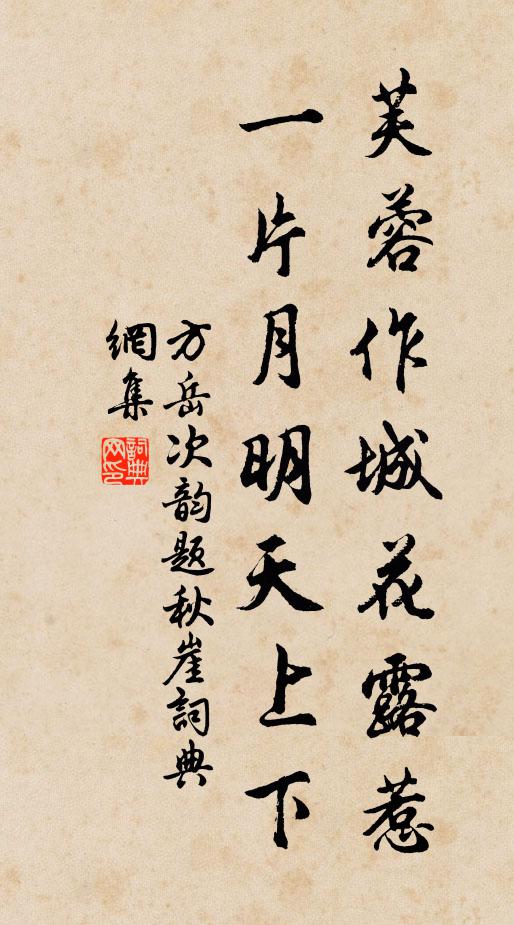 芙蓉作城花露惹
一片月明天上下
方岳次韵题秋崖詞典
網集
詞典网印